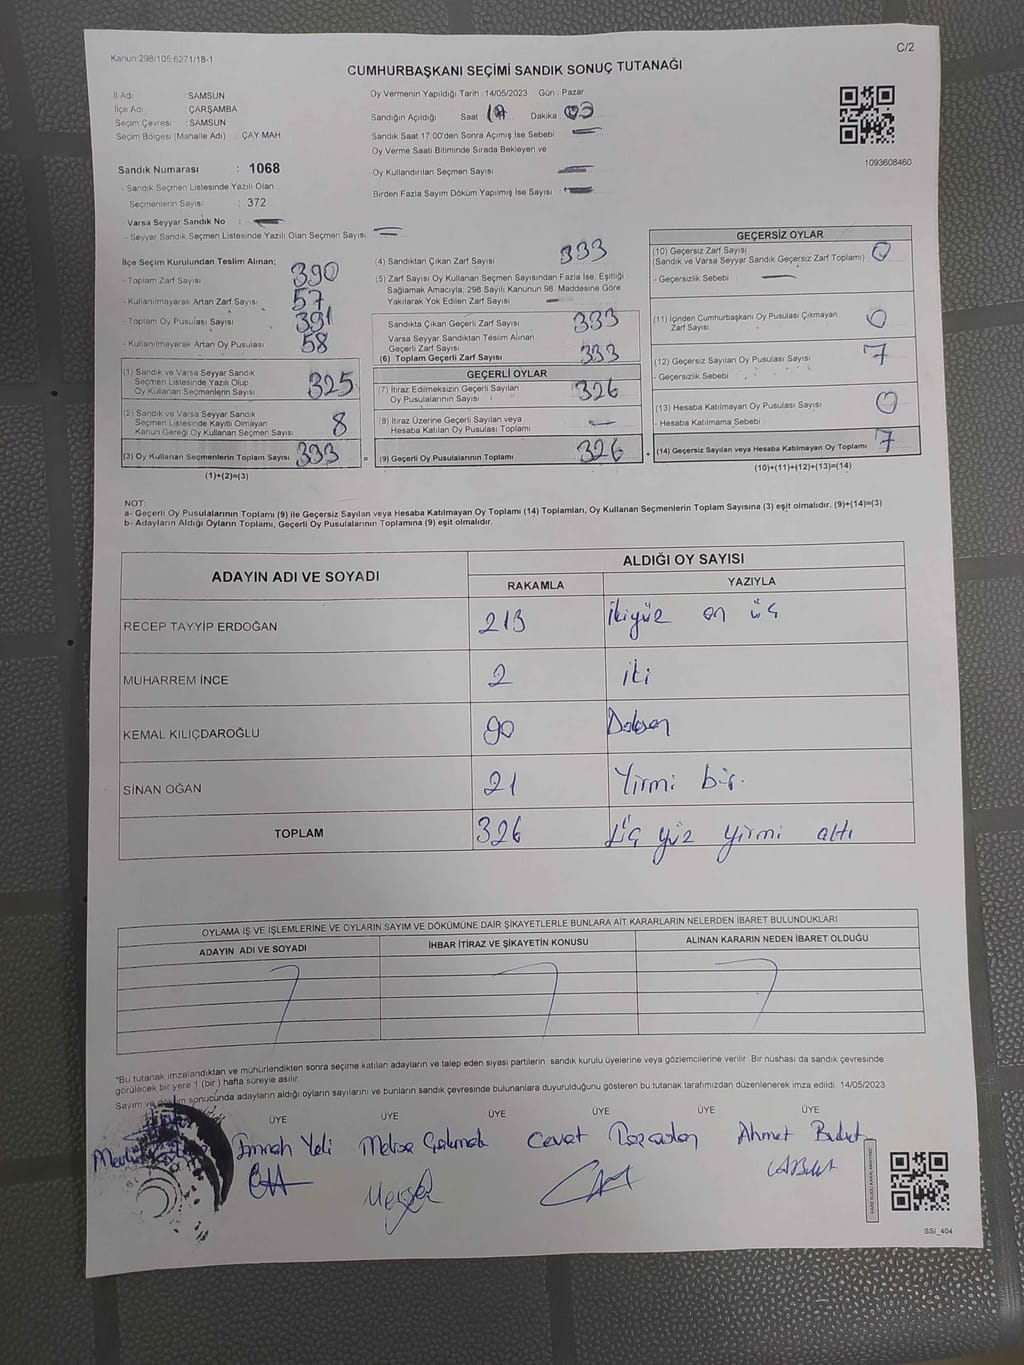 Kanun:298/105,6271/18-1
C/2
CUMHURBAŞKANI SEÇİMİ SANDIK SONUÇ TUTANAĞI
İl Adı SAMSUN
İlçe Adı ÇARŞAMBA
Seçim Çevresi : SAMSUN
Seçim Bölgesi (Mahalle Adı) : ÇAY MAH
Sandık Numarası : 1068
- Sandık Seçmen Listesinde Yazılı Olan
Seçmenlerin Sayısı : 372
Varsa Seyyar Sandık No :
- Seyyar Sandık Seçmen Listesinde Yazılı Olan Seçmen Sayısı
Oy Vermenin Yapıldığı Tarih : 14/05/2023 Gün : Pazar
Sandığın Açıldığı Saat Dakika 03
Sandık Saat 17:00'den Sonra Açımış İse Sebebi
Oy Verme Saati Bitiminde Sırada Bekleyen ve
Oy Kullandırılan Seçmen Sayısı
Birden Fazla Sayım Döküm Yapılmış İse Sayısı
1093608460
İlçe Seçim Kurulundan Teslim Alınan;
- Toplam Zarf Sayısı 390
- Kullanılmayarak Artan Zarf Sayısı 57
- Toplam Oy Pusulası Sayısı 391
- Kullanılmayarak Artan Oy Pusulası 58
(1) Sandık ve Varsa Seyyar Sandık
Seçmen Listesinde Yazılı Olup
Oy Kullanan Seçmenlerin Sayısı 325
(2) Sandık ve Varsa Seyyar Sandık
Seçmen Listesinde Kayıtlı Olmayan
Kanun Gereği Oy Kullanan Seçmen Sayısı 8
(3) Oy Kullanan Seçmenlerin Toplam Sayısı 333 =
(1)+(2)=(3)
(4) Sandıktan Çıkan Zarf Sayısı 333
(5) Zarf Sayısı Oy Kullanan Seçmen Sayısından Fazla İse, Eşitliği
Sağlamak Amacıyla; 298 Sayılı Kanunun 98. Maddesine Göre
Yakılarak Yok Edilen Zarf Sayısı
Sandıkta Çıkan Geçerli Zarf Sayısı 333
Varsa Seyyar Sandıktan Teslim Alınan
Geçerli Zarf Sayısı
(6) Toplam Geçerli Zarf Sayısı 333
GEÇERLİ OYLAR
(7) İtiraz Edilmeksizin Geçerli Sayılan
Oy Pusulalarının Sayısı 326
(8) İtiraz Üzerine Geçerli Sayılan veya
Hesaba Katılan Oy Pusulası Toplamı
(9) Geçerli Oy Pusulalarının Toplamı 326 +
GEÇERSİZ OYLAR
(10) Geçersiz Zarf Sayısı
(Sandık ve Varsa Seyyar Sandık Geçersiz Zarf Toplamı) 0
- Geçersizlik Sebebi
(11) İçinden Cumhurbaşkanı Oy Pusulası Çıkmayan
Zarf Sayısı 0
(12) Geçersiz Sayılan Oy Pusulası Sayısı 7
- Geçersizlik Sebebi
(13) Hesaba Katılmayan Oy Pusulası Sayısı 0
- Hesaba Katılmama Sebebi
(14) Geçersiz Sayılan veya Hesaba Katılmayan Oy Toplamı 7
(10)+(11)+(12)+(13)=(14)
NOT:
a- Geçerli Oy Pusulalarının Toplamı (9) ile Geçersiz Sayılan veya Hesaba Katılmayan Oy Toplamı (14) Toplamları, Oy Kullanan Seçmenlerin Toplam Sayısına (3) eşit olmalıdır. (9)+(14)=(3)
b- Adayların Aldığı Oyların Toplamı, Geçerli Oy Pusulalarının Toplamına (9) eşit olmalıdır.
ADAYIN ADI VE SOYADI
ALDIĞI OY SAYISI
RAKAMLA YAZIYLA
RECEP TAYYİP ERDOĞAN 213 İkiyüz on üç
MUHARREM İNCE 2 iki
KEMAL KILIÇDAROĞLU 90 Doksan
SİNAN OĞAN 21 Yirmi bir.
TOPLAM 326 Üç yüz yirmi altı
OYLAMA İŞ VE İŞLEMLERİNE VE OYLARIN SAYIM VE DÖKÜMÜNE DAİR ŞİKAYETLERLE BUNLARA AİT KARARLARIN NELERDEN İBARET BULUNDUKLARI
ADAYIN ADI VE SOYADI İHBAR İTİRAZ VE ŞİKAYETİN KONUSU ALINAN KARARIN NEDEN İBARET OLDUĞU
*Bu tutanak imzalandıktan ve mühürlendikten sonra seçime katılan adayların ve talep eden siyasi partilerin sandık kurulu üyelerine veya gözlemcilerine verilir. Bir nüshası da sandık çevresinde
görülecek bir yere 1 (bir ) hafta süreyle asılır.
Sayım ve döküm sonucunda adayların aldığı oyların sayılarını ve bunların sandık çevresinde bulunanlara duyurulduğunu gösteren bu tutanak tarafımızdan düzenlenerek imza edildi. 14/05/2023
ÜYE ÜYE ÜYE ÜYE ÜYE ÜYE
Cevat Ahmet Bulut
SSI_404